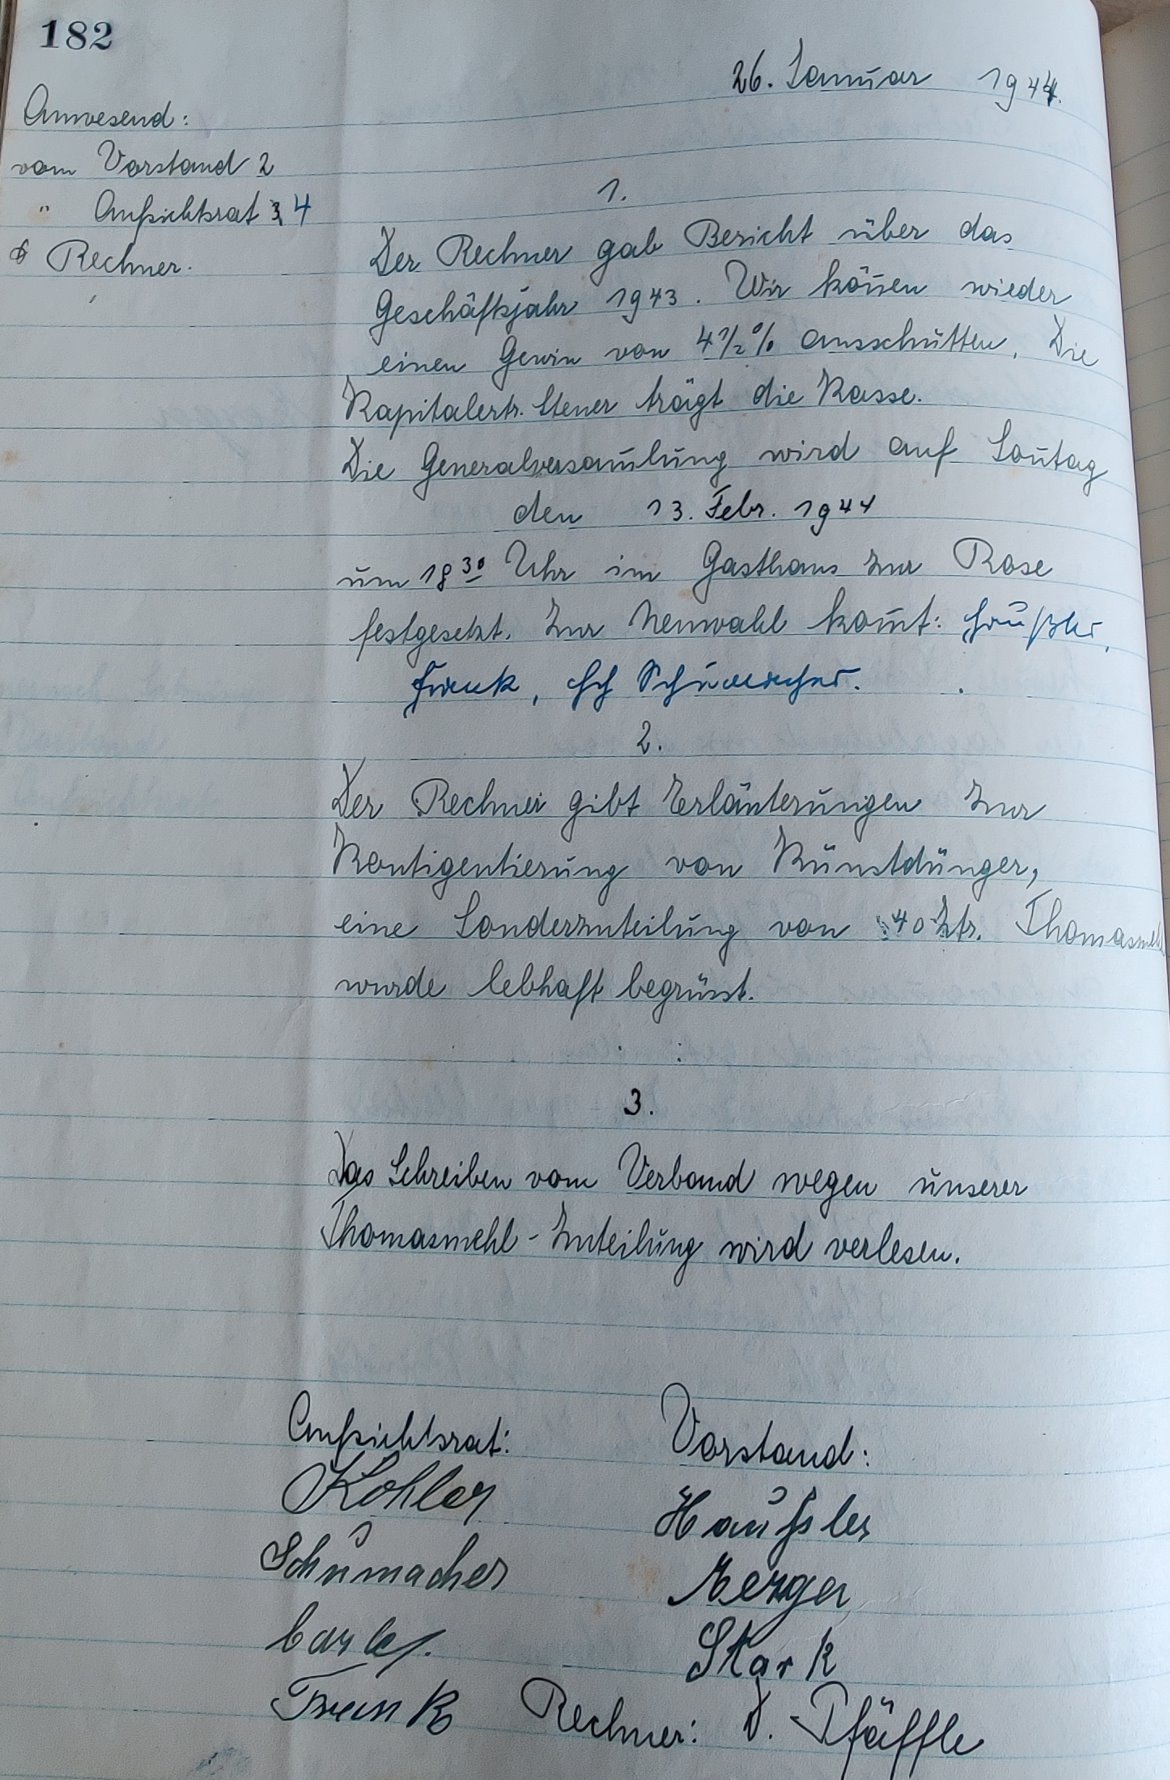 182
26. Januar 1944.
Anwesend:
vom Vorstand 2
" Aufsichtsrat 3 4
Rechner.
1.
Der Rechner gab Bericht über das
Geschäftsjahr 1943. Wir kön̄en wieder
einen Gewin̄ von 4 1/2 % ausschütten. Die
Kapitalertr. Steuer trägt die Kasse.
Die Generalversam̄lung wird auf Son̄tag
den 13. Febr. 1944
um 18 30 Uhr im Gasthaus zur Rose
festgesetzt. Zur Neuwahl kom̄t: Haußler,
Frank, Schumacher.
2.
Der Rechner gibt Erläuterungen zur
Kontigentierung von Kunstdünger,
eine Sonderzuteilung von 40 Ztr. Thomasmehl
wurde lebhaft begrüsst.
3.
Das Schreiben vom Verband wegen unserer
Thomasmehl-Zuteilung wird verlesen.
Aufsichtsrat: Vorstand:
Kohler Haußler
Schumacher
Stark
Frank Rechner: D. Pfäffle